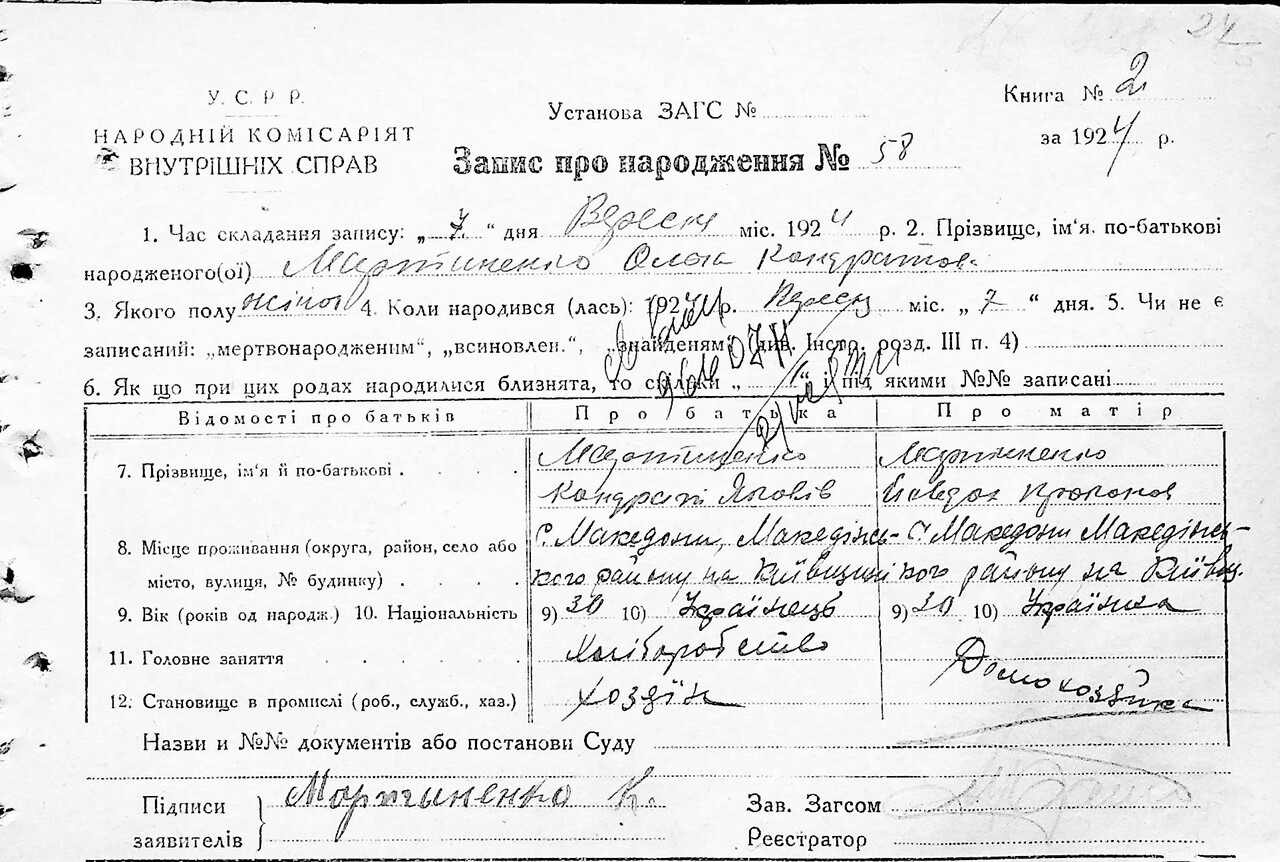 24
У. С. Р. Р.
НАРОДНІЙ КОМІСАРІЯТ
ВНУТРІШНІХ СПРАВ
Установа ЗАГС №
Книга № 2
за 1924 р.
Запис про народження № 58
1. Час складання запису: „ 7 “ дня Вересн міс. 1924 р. 2. Прізвище, ім‘я. по-батькові
народженого(ої) Мартиненко Ольга Кондратов.
3. Якого полу жіноч 4. Коли народився (лась): 1924 р. Вересн міс. „ 7 “ дня. 5. Чи не є
записаний: „мертвонародженим“, „всиновлен.“, „знайденям“ (див. Інстр. розд. III п. 4)
6. Як що при цих родах народилися близнята, то скільки „ “ і під якими №№ записані
Відомості про батьків Про батька Про матір
7. Прізвище, ім‘я й по-батькові . Мартиненко Мартиненко
Кондрат Яковів
8. Місце проживання (округа, район, село або С. Македони, Македінсь- С. Македони Македінсь-
місто, вулиця, № будинку) . кого району на Київщині кого району на Київщ.
9. Вік (років од народж.) 10. Національність 9) 30 10) Українець 9) 30 10) Українка
11. Головне заняття Хліборобство
12. Становище в промислі (роб., служб., хаз.) хоздін Домохоздйка
Назви и №№ документів або постанови Суду
Підписи Мартиненко К. Зав. Загсом
заявителів Реєстратор